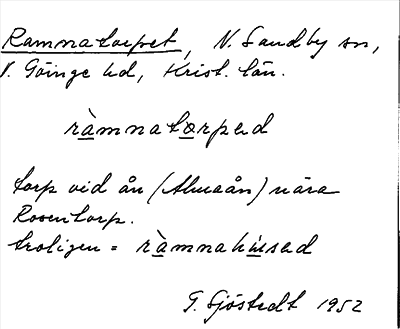 Ramnatorpet, N. Sandby sn,
V. Göinge hd, Krist. län.
ràmnatòrped
torp vid ån (Almaån) nära
Rosentorp.
troligen = ràmnahúsed
G. Sjöstedt 1952